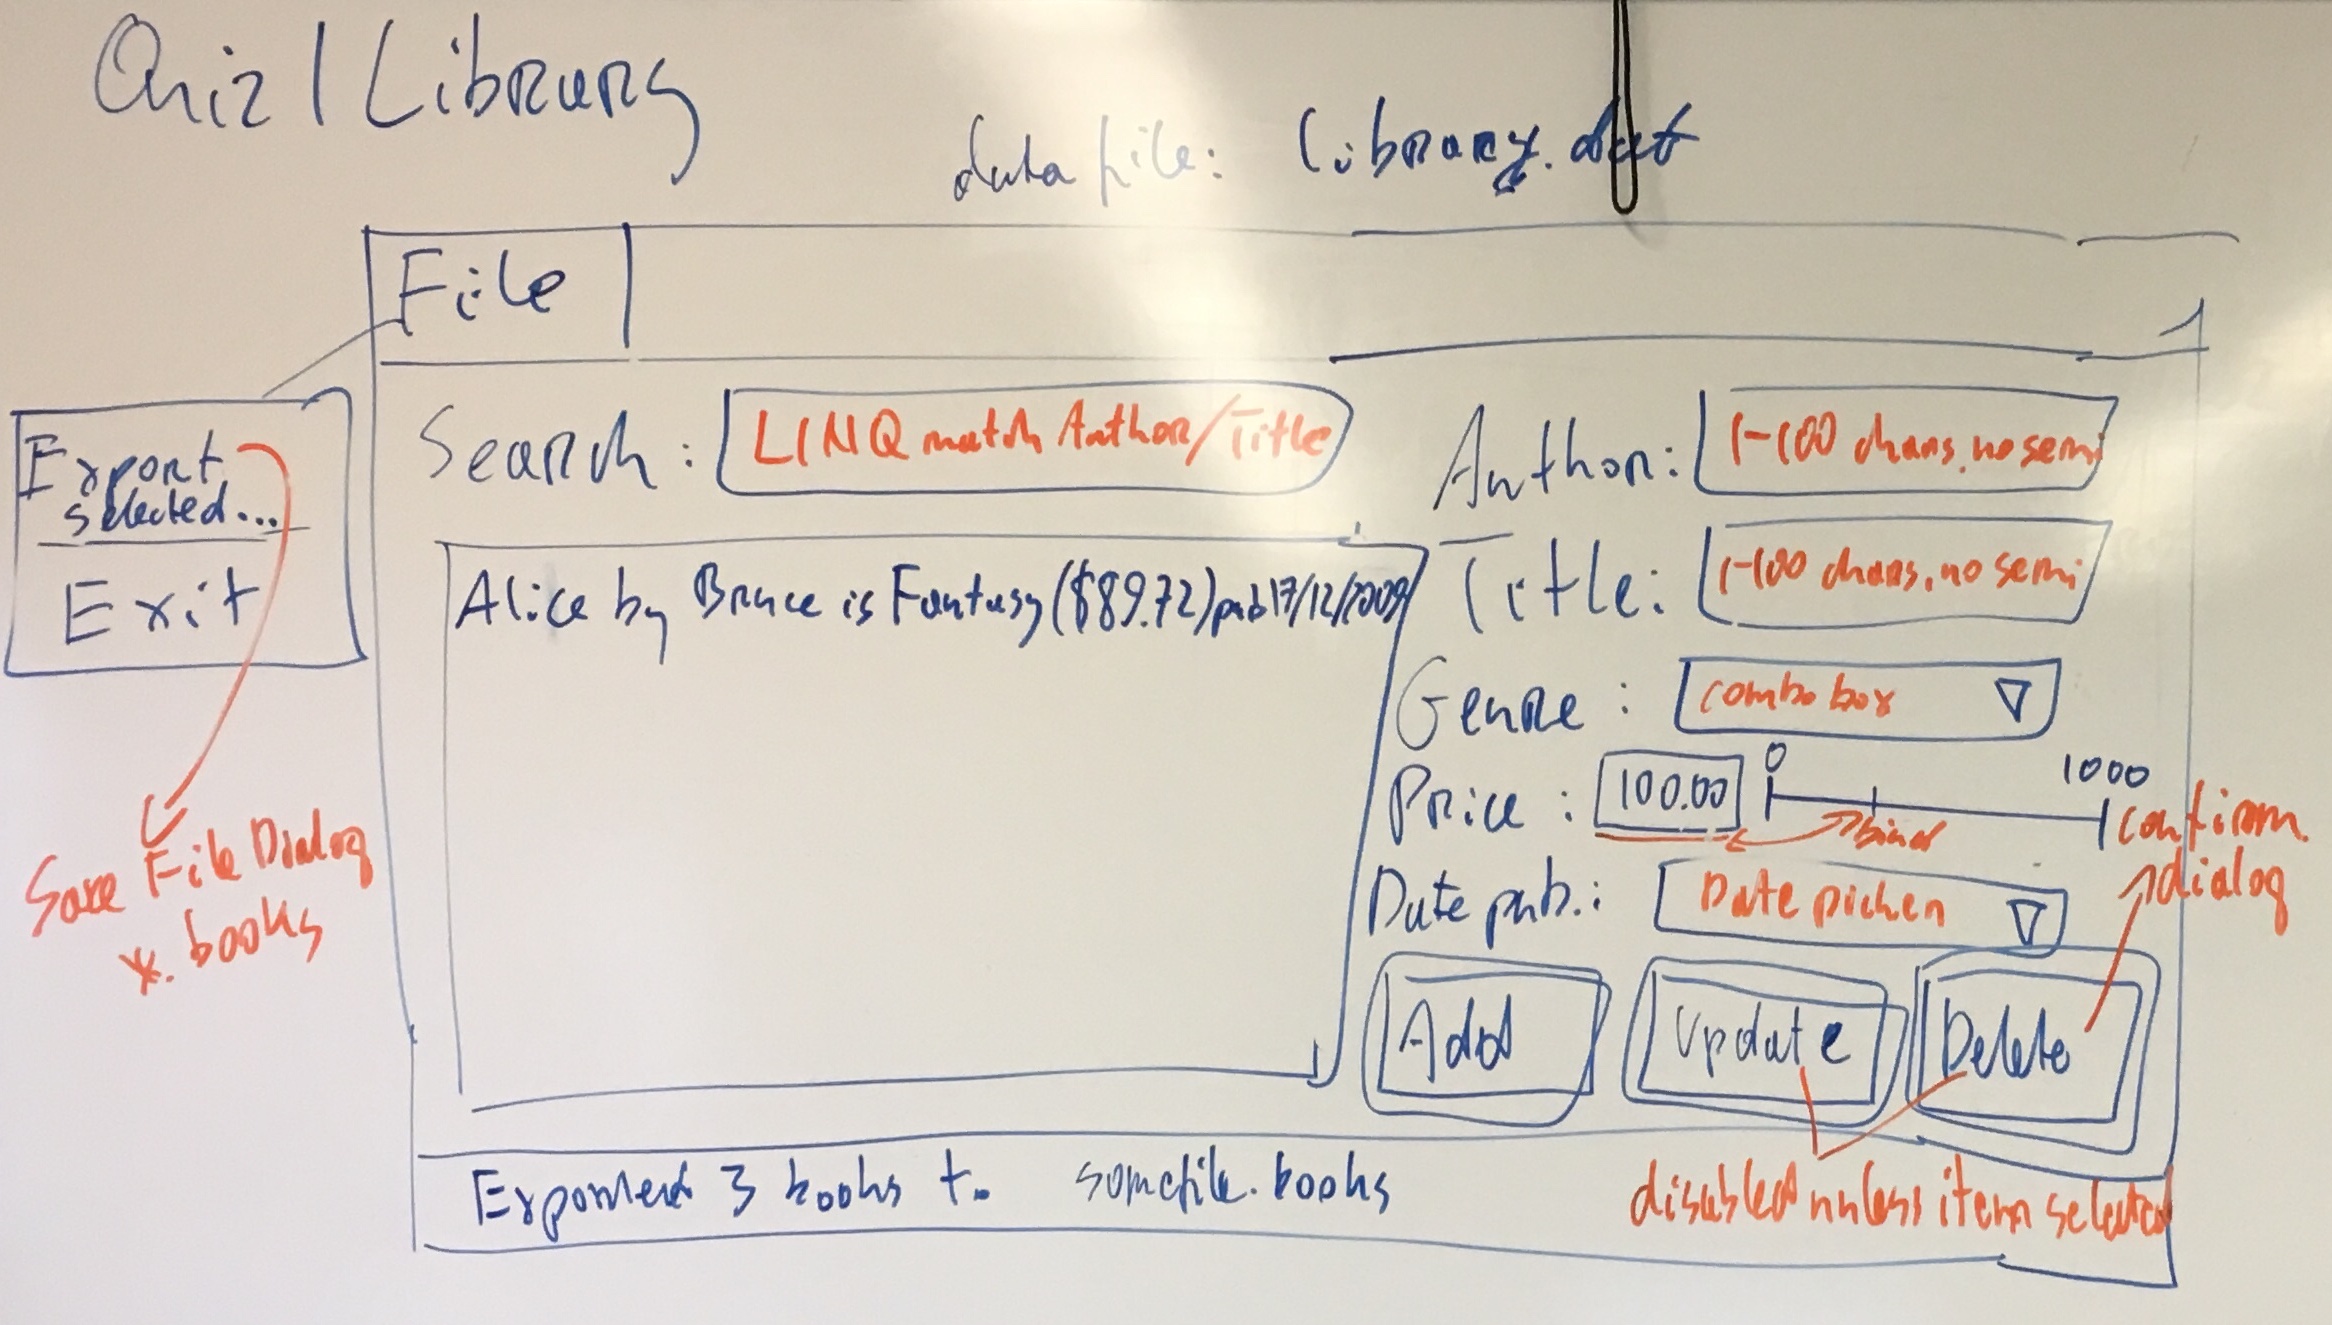 Quiz 1 Library
data file: library.dat
File
Export selected...
Exit
Save File Dialog
*.books
Search: LINQ match Author/Title
Alice by Bruce is Fantasy ($89.72) pub 17/12/2009
Author: 1-100 chars, no semi
Title: 1-100 chars, no semi
Genre: combo box
Price: 100.00 0 1000
bind
Date pub.: Date picker
confirm.
dialog
Add Update Delete
disabled unless item selected
Exported 3 books to somefile.books